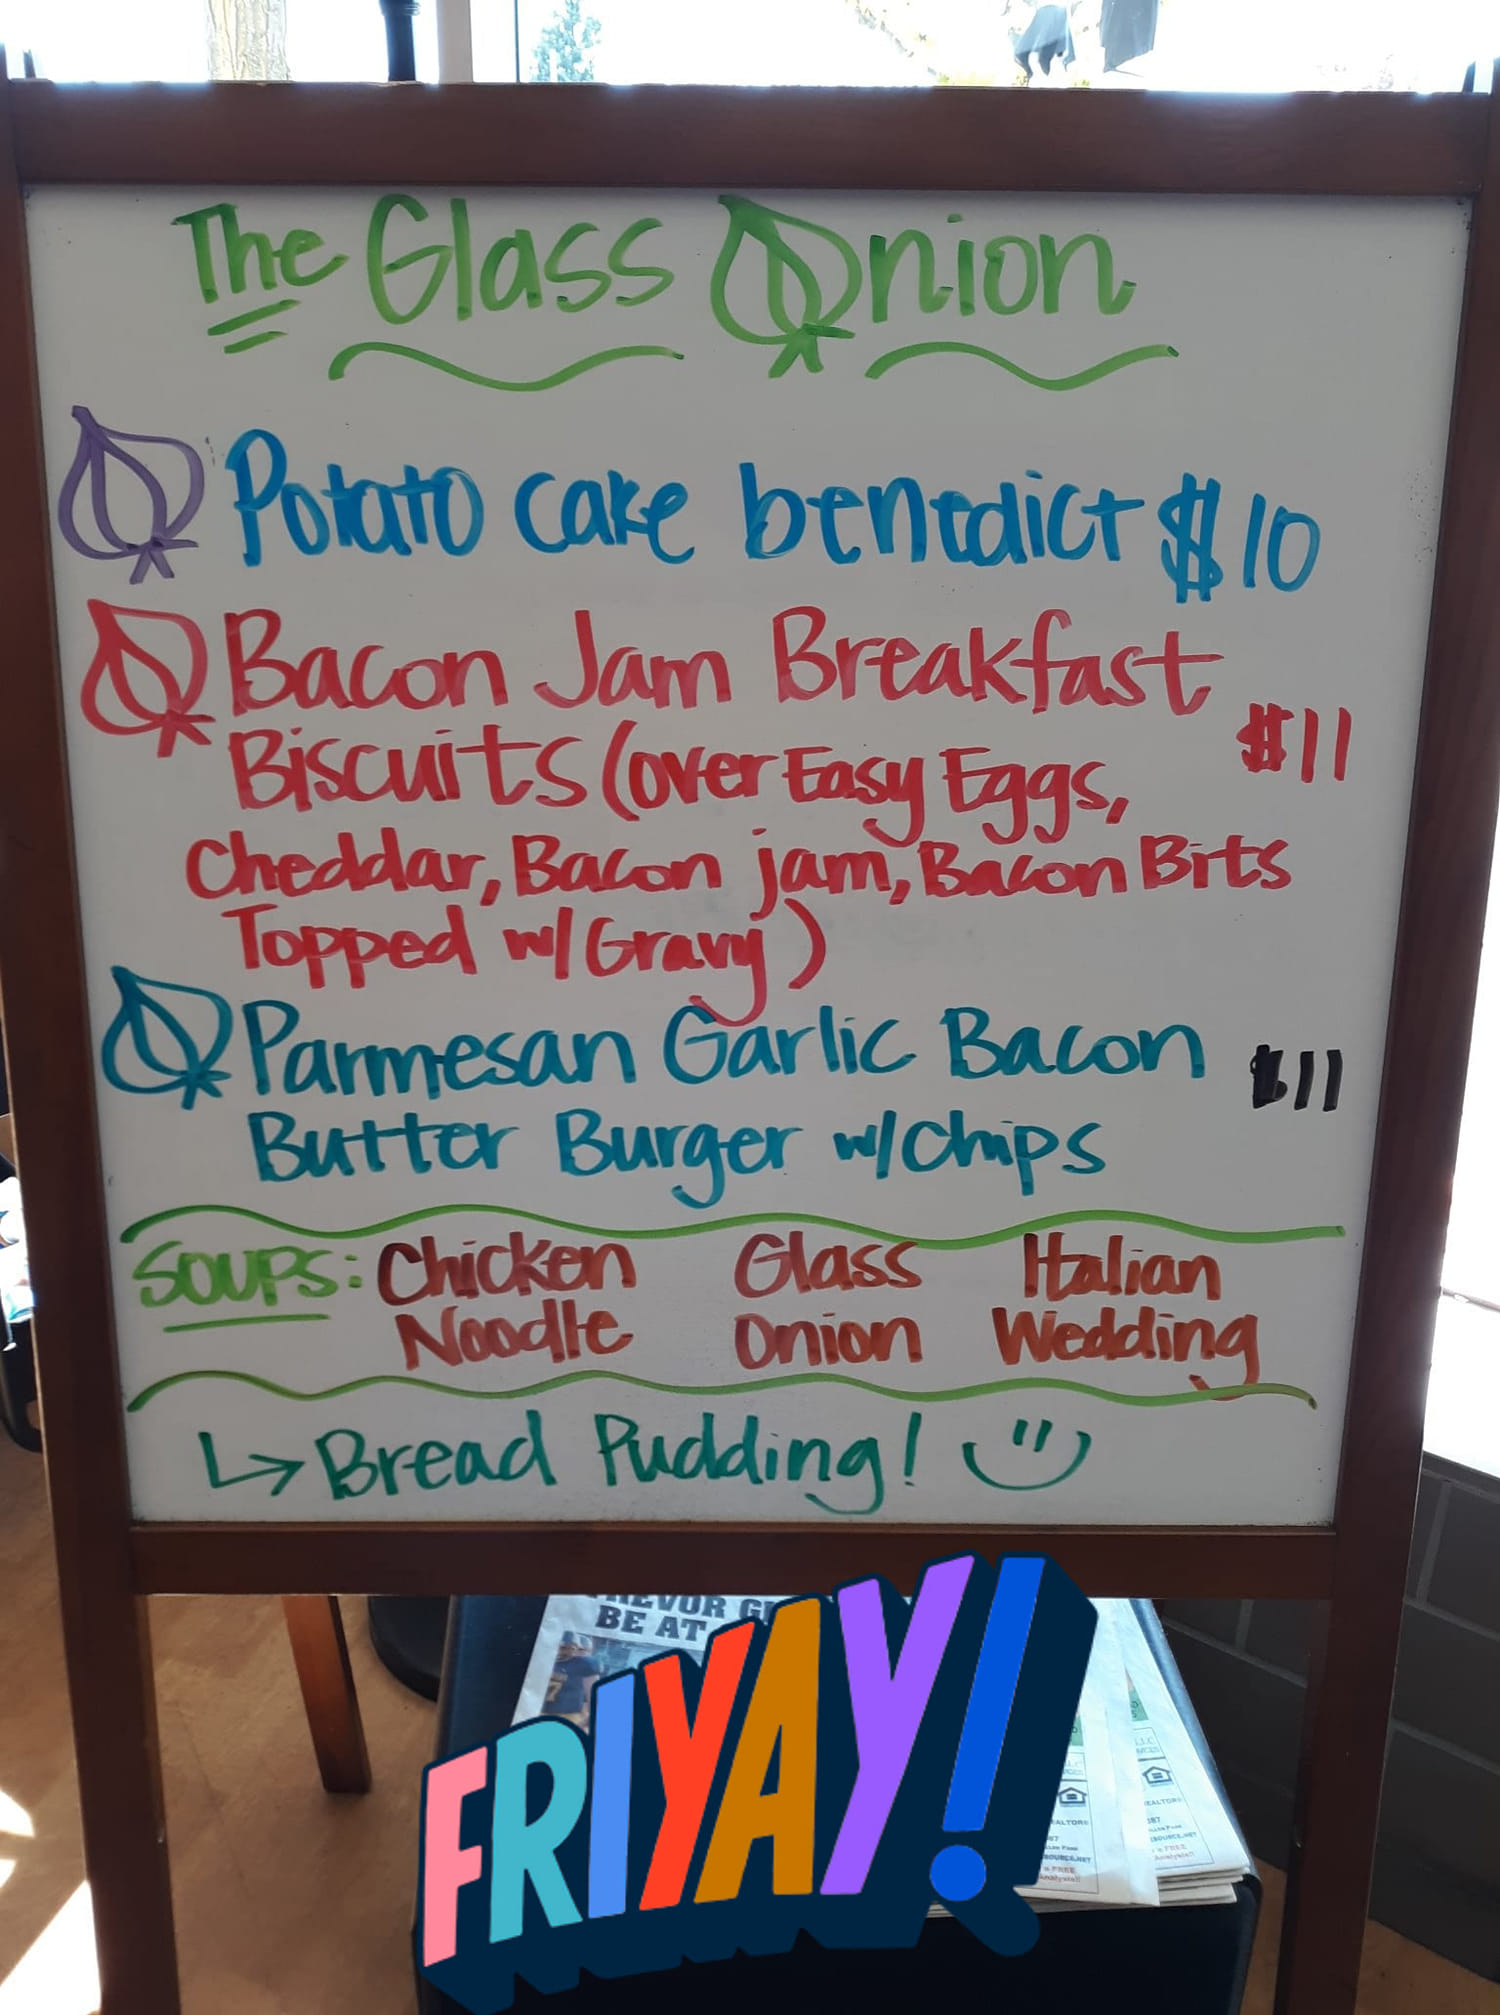 The Glass Onion
Potato cake benedict $10
Bacon Jam Breakfast
Biscuits (over Easy Eggs, $11
Cheddar, Bacon jam, Bacon Bits
Topped w/ Gravy)
Parmesan Garlic Bacon $11
Butter Burger w/ chips
Soups: Chicken Glass Italian
Noodle Onion Wedding
Bread Pudding!
BE AT
FRIYAY!